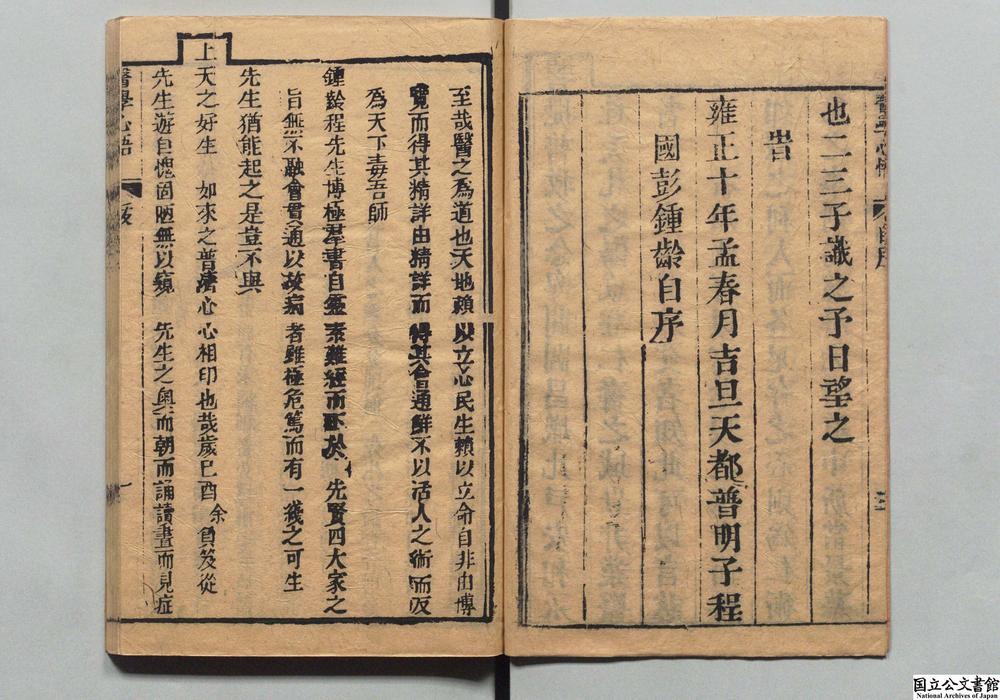 也二三子識之予日望之
旹
雍正十年孟春月吉旦天都普明子程
國彭鍾齡自序
至哉醫之為道也天地賴以立心民生賴以立命自非由博
覽而得其精詳由精詳而得其會通鮮不以活人之術而反
為天下毒吾師
鍾齡程先生博極群書自靈素難經而下於先賢四大家之
旨無不融會貫通以故病者雖極危篤而有一綫之可生
先生猶能起之是豈不與
上天之好生 如來之普濟心心相印也哉歲己酉余負笈從
先生遊自愧固陋無以窺先生之奧而朝而誦讀晝而見症
醫學心悟
一
国立公文書館
National Archives of Japan